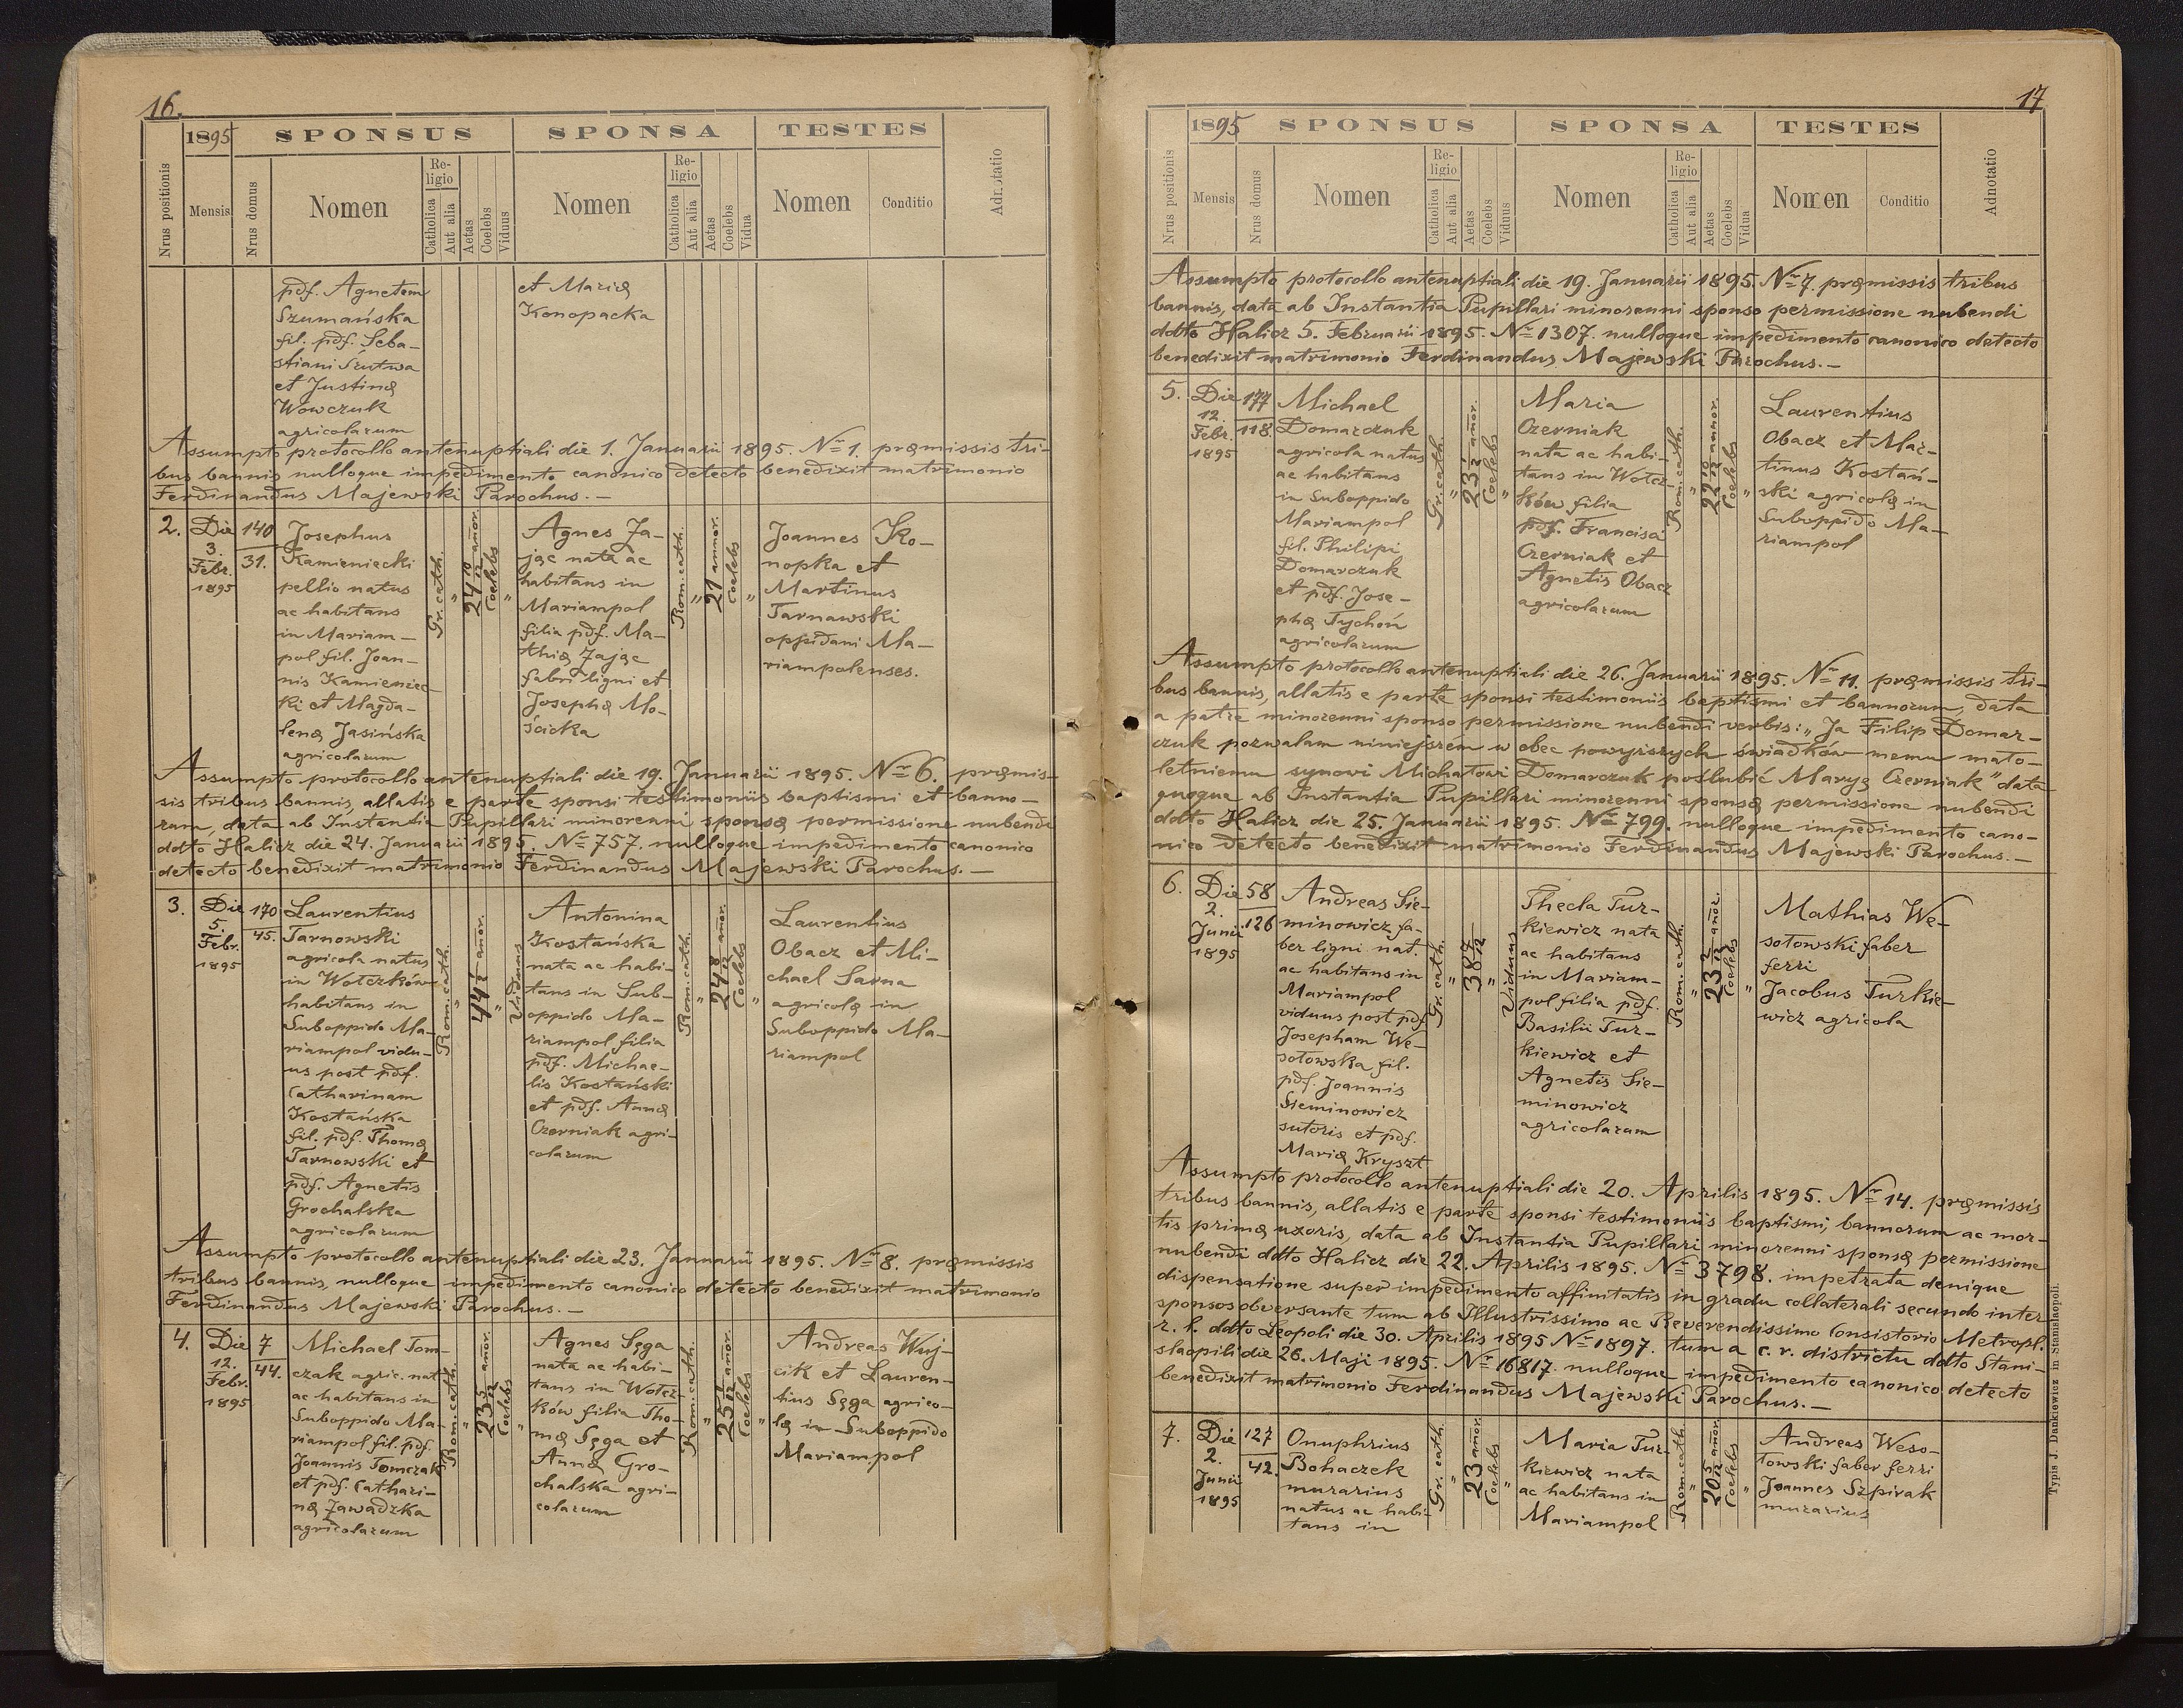 16.
1895
SPONSUS
SPONSA
TESTES
Nrus positionis
Mensis
Nrus domus
Nomen
Religio
Catholica
Aut alia
Aetas
Coelebs
Viduus
Nomen
Religio
Catholica
Aut alia
Aetas
Coelebs
Vidua
Nomen
Conditio
Adnotatio
pdf. Agnetem
Szumańska
fil. pdf. Seba-
stiani Śrutwa
et Justinę
Wowczuk
agricolarum
et Marię
Konopacka
Assumpto protocollo antenuptiali die 1. Januarii 1895. Nr 1. pręmissis tri-
bus bannis nulloque impedimento canonico detecto benedixit matrimonio
Ferdinandus Majewski Parochus. —
2.
Die
3.
Febr.
1895
140
31.
Josephus
Kamieniecki
pellio natus
ac habitans
in Mariam-
pol fil. Joan-
nis Kamieniec-
ki et Magda-
lenę Jasińska
agricolarum
Gr. cath.
"
24 10/12 añor.
Coelebs
"
Agnes Za-
jąc nata ac
habitans in
Mariampol
filia pdf. Ma-
thię Zając
fabri ligni et
Josephę Mo-
ścicka
Rom. cath.
"
21 annor.
Coelebs
"
Joannes Ko-
nopka et
Martinus
Tarnawski
oppidani Ma-
riampolenses.
Assumpto protocollo antenuptiali die 19. Januarii 1895. Nr 6. pręmis-
sis tribus bannis, allatis e parte sponsi testimoniis baptismi et banno-
rum, data ab Instantia Pupillari minorenni sponsę permissione nubendi
ddto Halicz die 24. Januarii 1895. Nr 757. nulloque impedimento canonico
detecto benedixit matrimonio Ferdinandus Majewski Parochus. —
3.
Die
5.
Febr.
1895
170
45.
Laurentius
Tarnowski
agricola natus
in Wołczków
habitans in
Suboppido Ma-
riampol vidu-
us post pdf.
Catharinam
Kostańska
fil. pdf. Thomę
Tarnowski et
pdf. Agnetis
Grochalska
agricolarum
Rom. cath.
"
44 1/2 añor.
"
Viduus
Antonina
Kostańska
nata ac habi-
tans in Sub-
oppido Ma-
riampol filia
pdf. Michae-
lis Kostański
et pdf. Annę
Czerniak agri-
colarum
Rom. cath.
"
24 8/12 añor.
Coelebs
"
Laurentius
Obacz et Mi-
chael Sarna
agricolę in
Suboppido Ma-
riampol
Assumpto protocollo antenuptiali die 23. Januarii 1895. Nr 8. pręmissis
tribus bannis, nulloque impedimento canonico detecto benedixit matrimonio
Ferdinandus Majewski Parochus. —
4.
Die
12.
Febr.
1895
7
44.
Michael Tom-
czak agric. nat
ac habitans in
Suboppido Ma-
riampol fil. pdf.
Joannis Tomczak
et pdf. Cathari-
nę Zawadzka
agricolarum
Rom. cath.
"
23 5/12 añor.
Coelebs
"
Agnes Sęga
nata ac habi-
tans in Wołcz-
ków filia Tho-
mę Sęga et
Annę Gro-
chalska agri-
colarum
Rom. cath.
"
25 1/12 añor.
Coelebs
"
Andreas Wuj-
cik et Lauren-
tius Sęga agrico-
lę in Suboppido
Mariampol
17
1895
SPONSUS
SPONSA
TESTES
Nrus positionis
Mensis
Nrus domus
Nomen
Religio
Catholica
Aut alia
Aetas
Coelebs
Viduus
Nomen
Religio
Catholica
Aut alia
Aetas
Coelebs
Vidua
Nomen
Conditio
Adnotatio
Assumpto protocollo antenuptiali die 19. Januarii 1895. Nr 7. pręmissis tribus
bannis, data ab Instantia Pupillari minorenni sponso permissione nubendi
ddto Halicz 5. Februarii 1895. Nr 1307. nulloque impedimento canonico detecto
benedixit matrimonio Ferdinandus Majewski Parochus. —
5.
Die
12.
Febr.
1895
177
118.
Michael
Domarczuk
agricola natus
ac habitans
in Suboppido
Mariampol
fil. Philipi
Domarczuk
et pdf. Jose-
phę Tychoń
agricolarum
Gr. cath.
"
23 1/2 añor.
Coelebs
"
Maria
Czerniak
nata ac habi-
tans in Wołcz-
ków filia
pdf. Francisci
Czerniak et
Agnetis Obacz
agricolarum
Rom. cath.
"
22 10/12 annor.
Coelebs
"
Laurentius
Obacz et Mar-
tinus Kostań-
ski agricolę in
Suboppido Ma-
riampol
Assumpto protocollo antenuptiali die 26. Januarii 1895. Nr 11. pręmissis tri-
bus bannis, allatis e parte sponsi testimoniis baptismi et bannorum, data
a patre minorenni sponso permissione nubendi verbis: „Ja Filip Domar-
czuk pozwalam niniejszém w obec powyższych świadków memu mało-
letniemu synowi Michałowi Domarczuk poślubić Maryę Czerniak" data
quoque ab Instantia Pupillari minorenni sponsę permissione nubendi
ddto Halicz die 25. Januarii 1895. Nr 799. nulloque impedimento cano-
nico detecto benedixit matrimonio Ferdinandus Majewski Parochus. —
6.
Die
2.
Junii
1895
58
126
Andreas Sie-
minowicz fa-
ber ligni nat.
ac habitans in
Mariampol
viduus post pdf
Josepham We-
sołowska fil.
pdf. Joannis
Sieminowicz
sutoris et pdf.
Marię Kryszt
Gr. cath.
"
38 7/12
"
Viduus
Thecla Tur-
kiewicz nata
ac habitans
in Mariam-
pol filia pdf.
Basilii Tur-
kiewicz et
Agnetis Sie-
minowicz
agricolarum
Rom. cath.
"
23 2/12 añor.
Coelebs
"
Mathias We-
sołowski faber
ferri
Jacobus Turkie-
wicz agricola
Assumpto protocollo antenuptiali die 20. Aprilis 1895. Nr 14. pręmissis
tribus bannis, allatis e parte sponsi testimoniis baptismi, bannorum ac mor-
tis primę uxoris, data ab Instantia Pupillari minorenni sponsę permissione
nubendi ddto Halicz die 22. Aprilis 1895. Nr 3798. impetrata denique
dispensatione super impedimento affinitatis in gradu collaterali secundo inter
sponsos obversante tum ab Illustrissimo ac Reverendissimo Consistorio Metropl.
r. l. ddto Leopoli die 30. Aprilis 1895 Nr 1897. tum a c. r. districtu ddto Stani-
slaopili die 26. Maji 1895. Nr 16817. nulloque impedimento canonico detecto
benedixit matrimonio Ferdinandus Majewski Parochus. —
7.
Die
2.
Junii
1895
127
42.
Onuphrius
Bohaczek
murarius
natus ac habi-
tans in
Gr. cath.
"
23 añor.
Coelebs
"
Maria Tur-
kiewicz nata
ac habitans in
Mariampol
Rom. cath.
"
20 5/12 añor.
Coelebs
"
Andreas Weso-
łowski faber ferri
Joannes Szpirak
murarius
Typis J. Dankiewicz in Stanislaopoli.